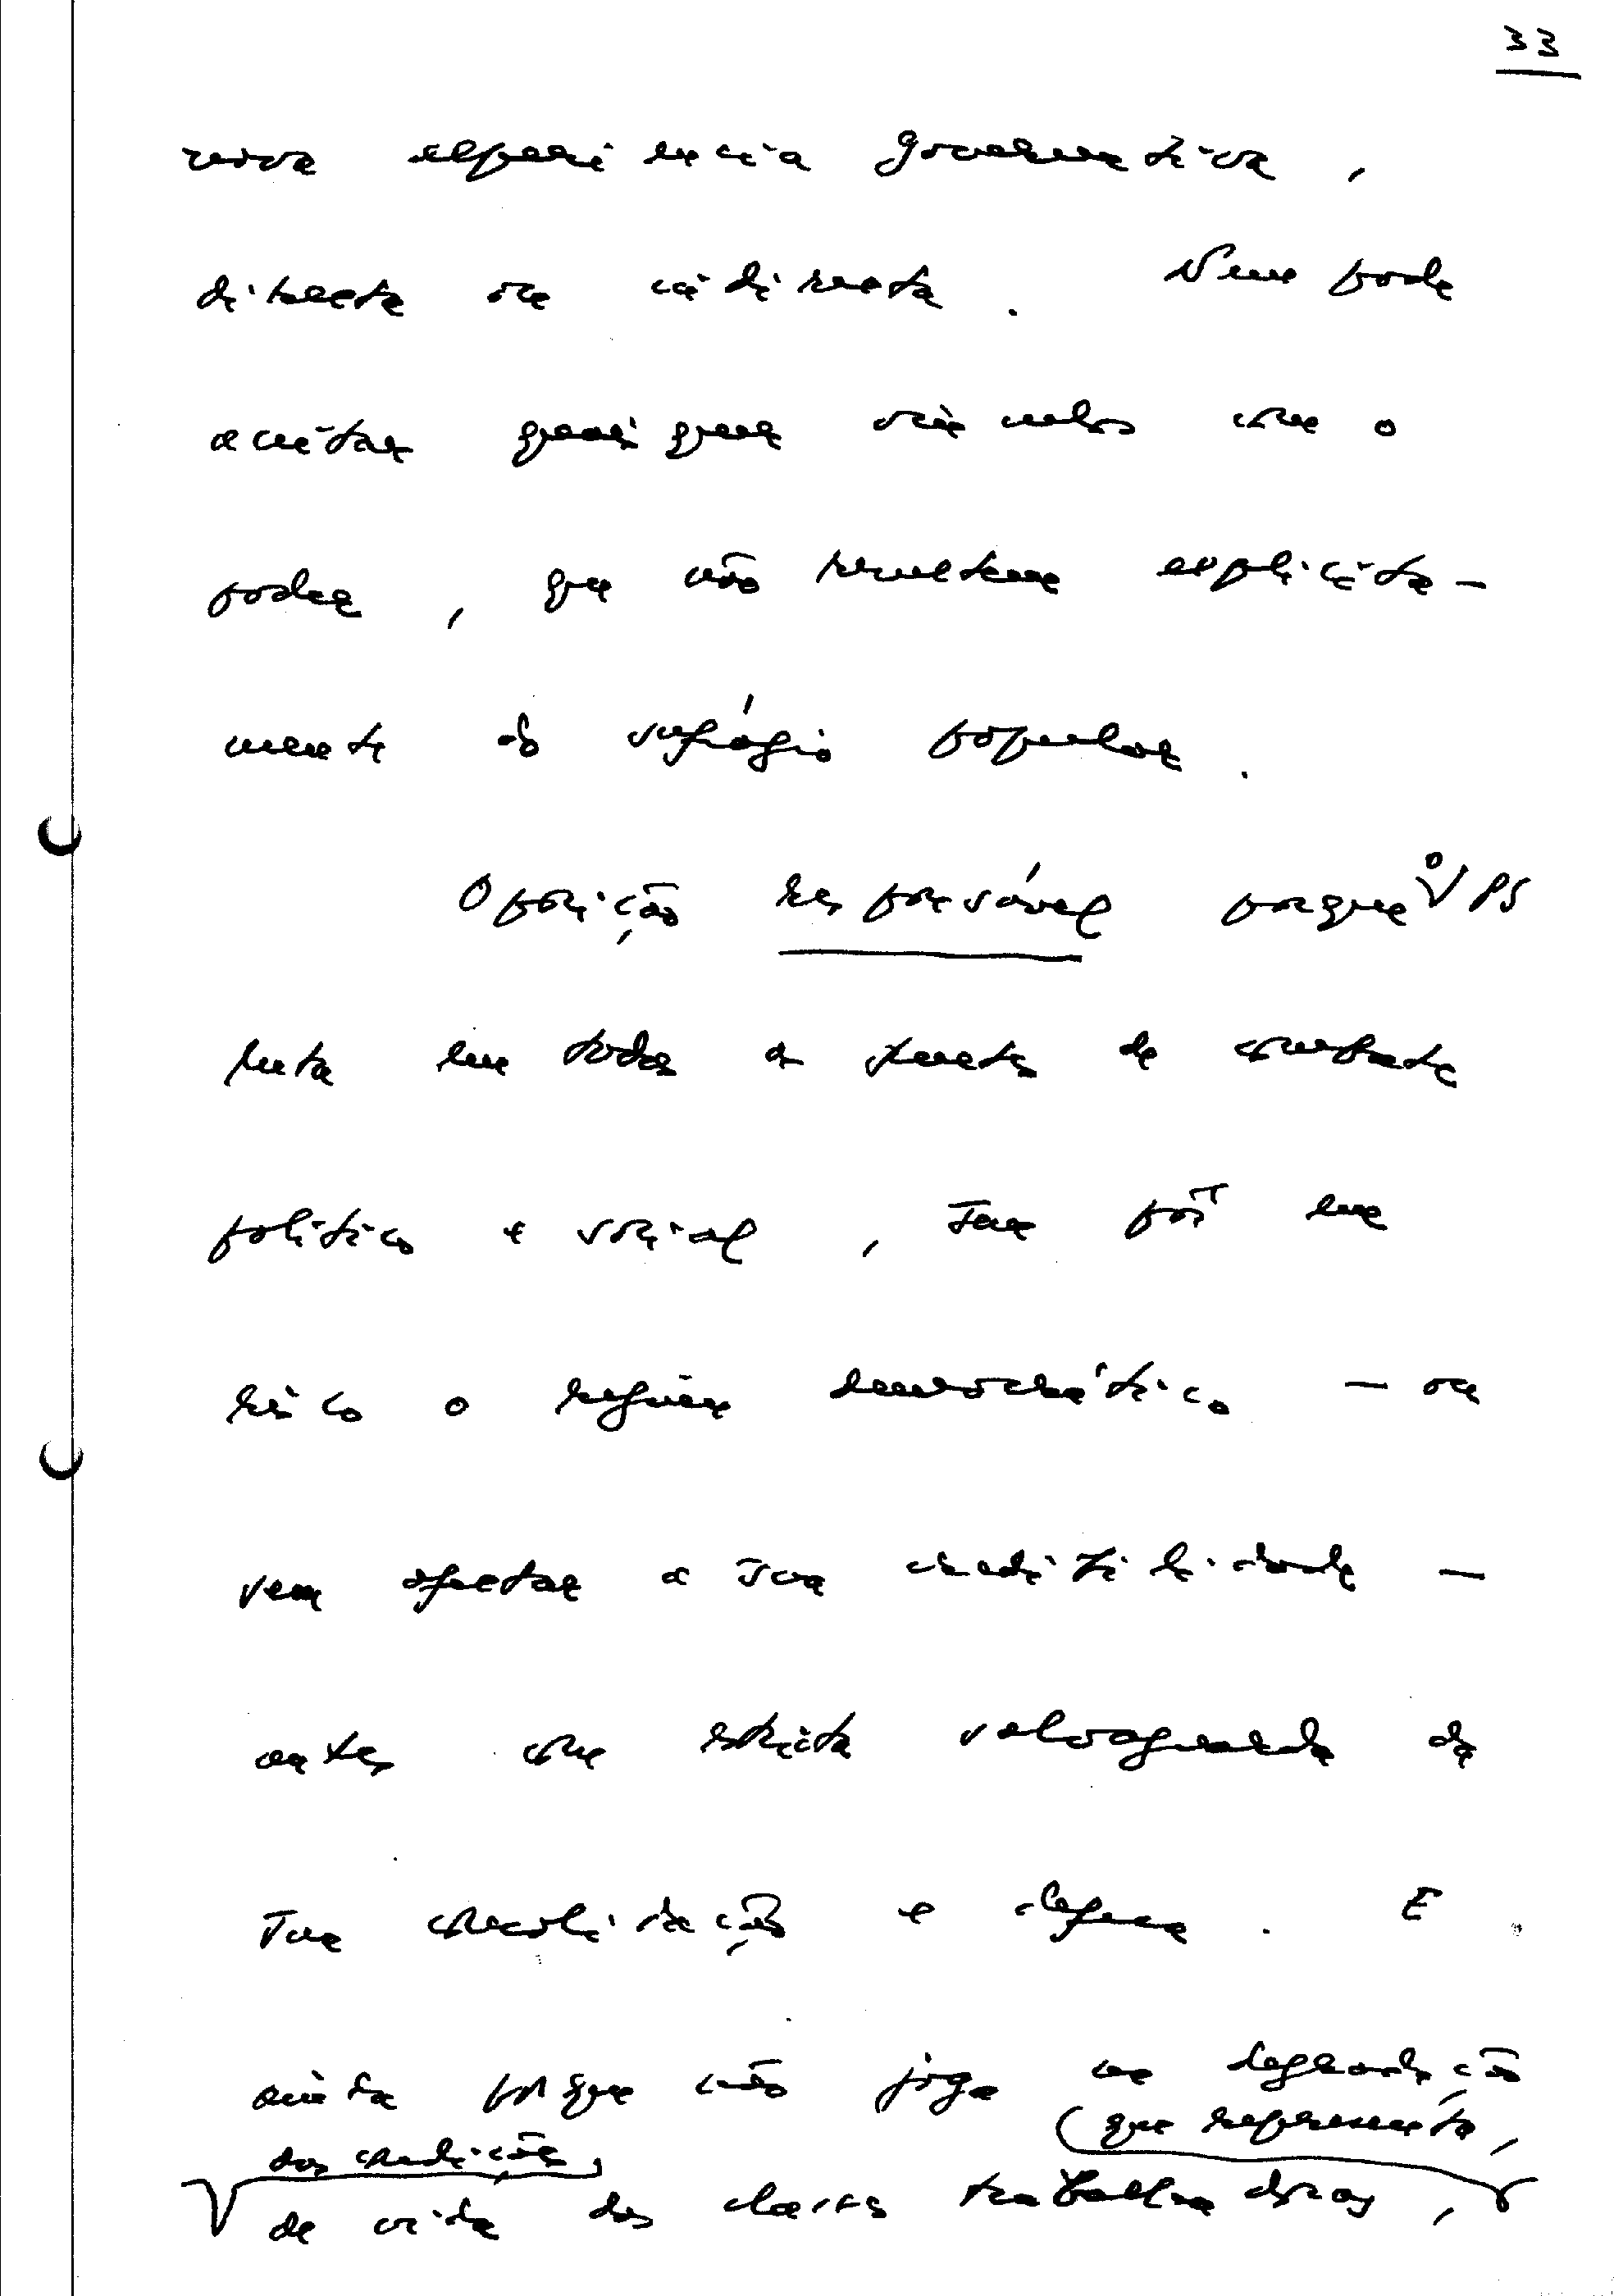 33
nova experiência governativa,
directa ou indirecta. Nem pode
aceitar quaisquer vínculos com o
poder, que não remetam explicita-
mente ao sufrágio popular.
Oposição responsável porque o PS
luta em todas as frentes de combate
político e social, sem pôr em
risco o regime democrático – ou
sem afectar a sua credibilidade –
antes com estrita salvaguarda da
sua consolidação e defesa. E
ainda porque não joga na degradação
das condições (que representa,
de vida das classes trabalhadoras,